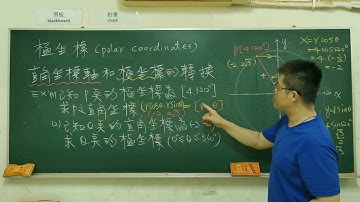 黑板
blackboard
粉筆
chalk
極坐標 (polar coordinates)
直角坐標軸和極坐標的轉換
Ex (1) 已知P點的極坐標為 [4, 120°]
求P之直角坐標 (rcosθ, rsinθ)
(-2, 2√3)
(2) 已知Q點的直角坐標為(-2
求Q點的極坐標 (0°≤θ≤360°)
P[4,120°]
(-2, 2√3)
y
x
X=rcosθ
=4cos120°
=4·(-1/2)
=-2